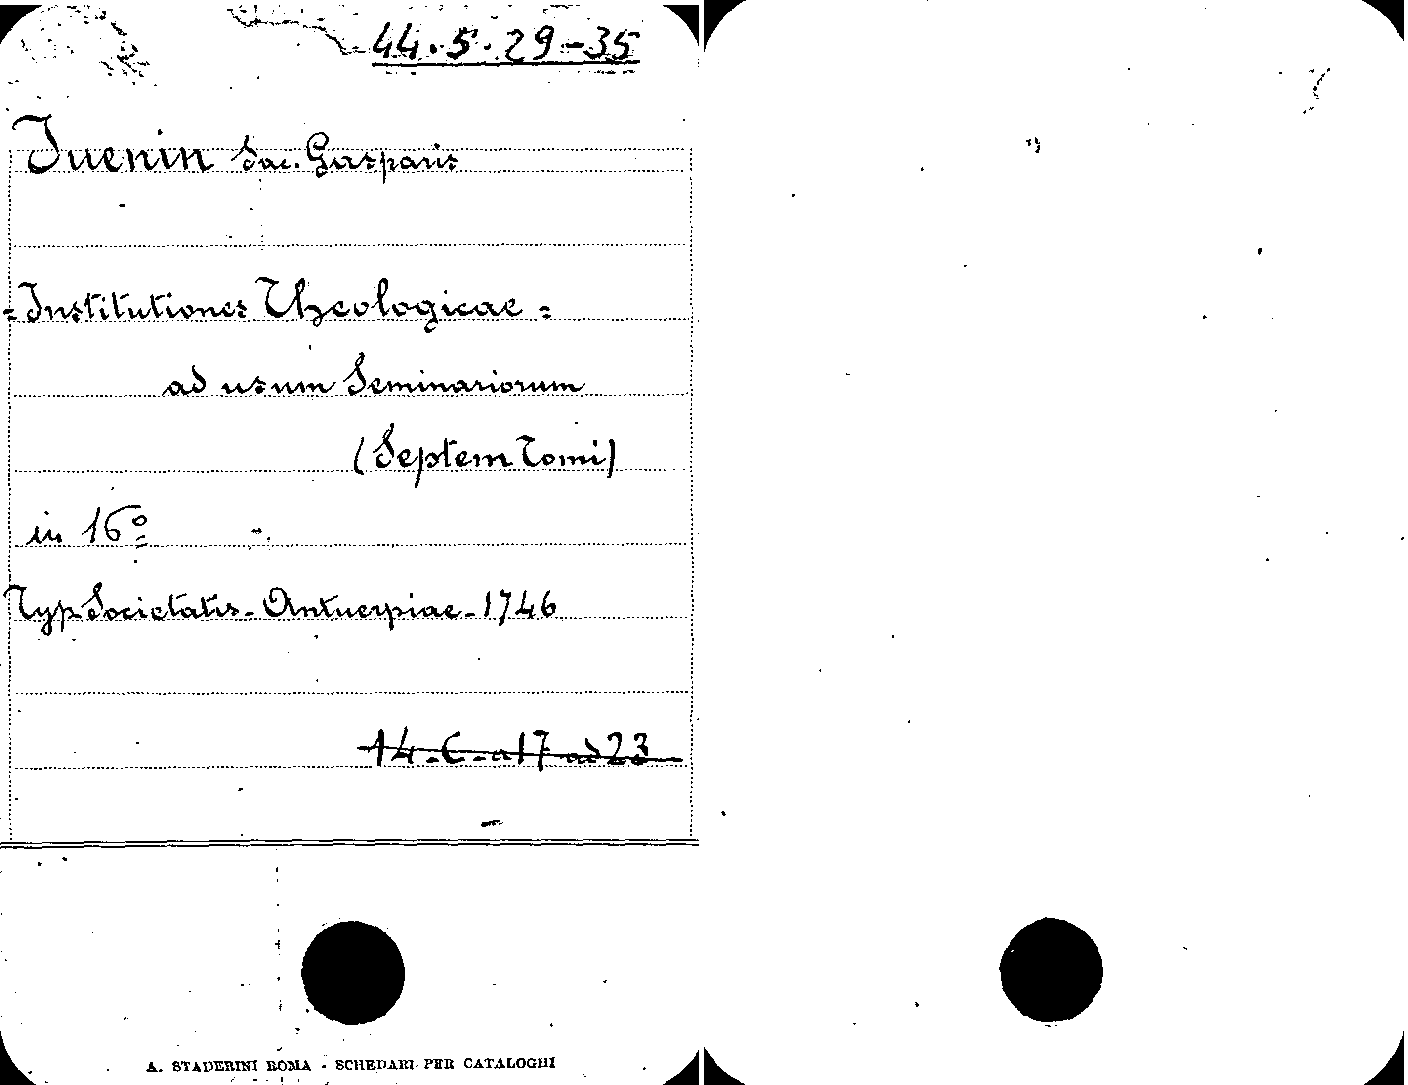 44.5.29-35
Juenin Sac. Gasparis
= Institutiones Theologicae =
ad usum Seminariorum
(Septem Tomi)
in 16º
Typ Societatis - Antuerpiae - 1746
14 - C - a 17 ad 23
A. STADERINI ROMA - SCHEDARI PER CATALOGHI